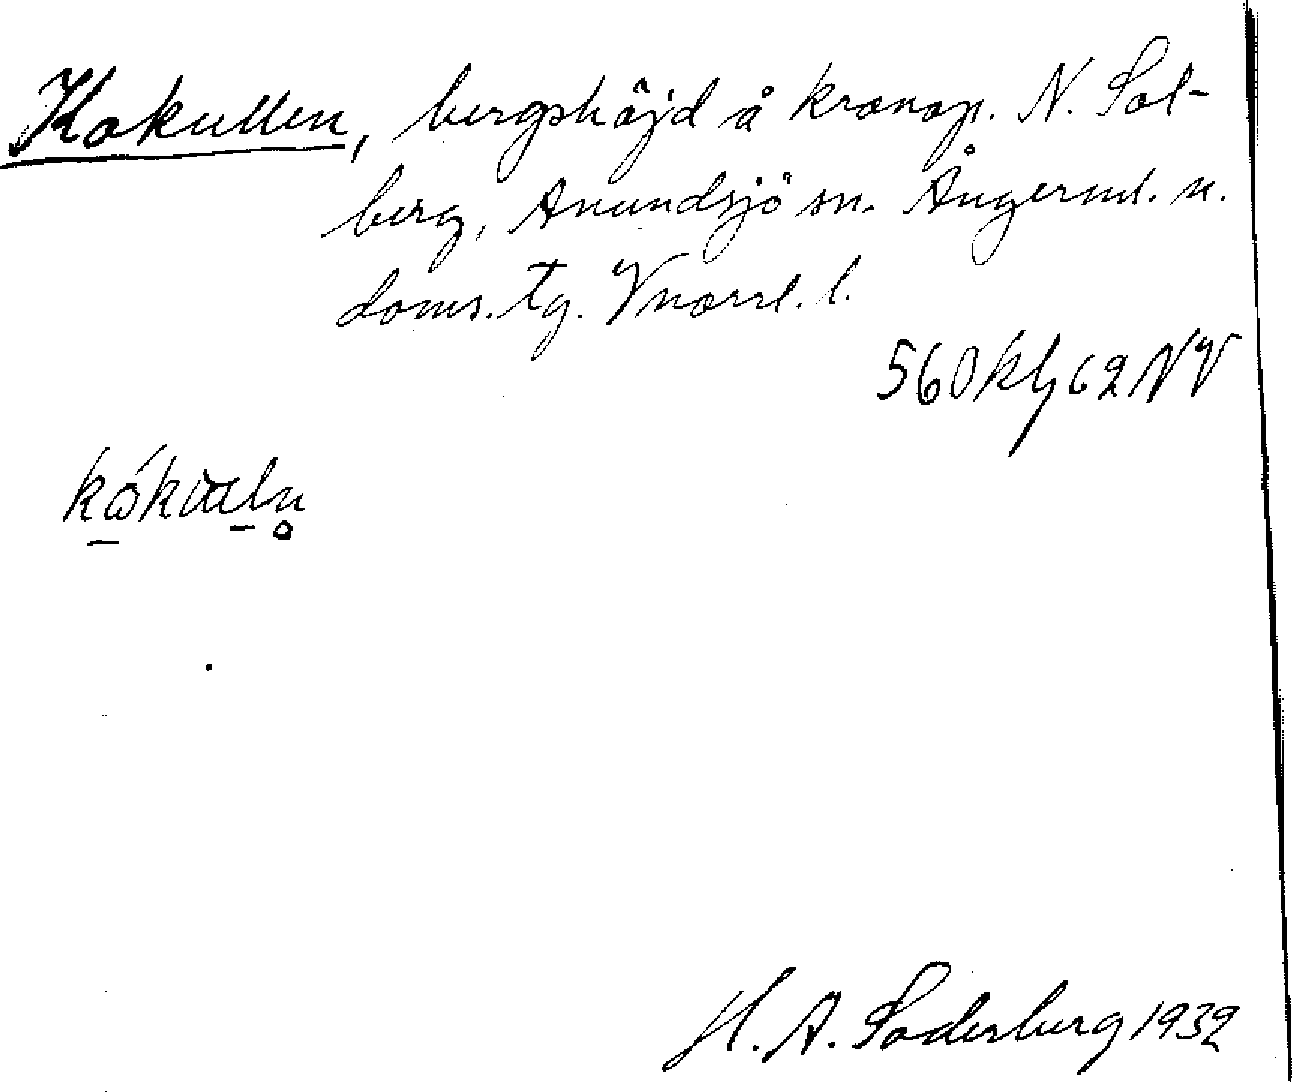 Kokullen, bergshöjd å kronop. N. Sol-
berg, Anundsjö sn. Ångerml. n.
doms. tg. Vnorrl. l.
560 kbl 62 NV
H. A. Söderberg 1932